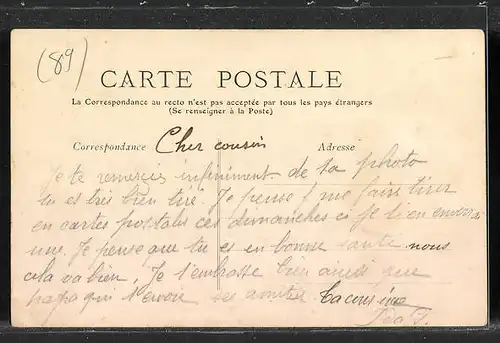 (89)
CARTE POSTALE
La Correspondance au recto n'est pas acceptée par tous les pays étrangers
(Se renseigner à la Poste)
Correspondance Cher cousin Adresse
Je te remercie infiniment de ta photo
tu es très bien tiré. Je pense me faire tirer
en cartes postales ces dimanches ci je t'en enverrai
une. Je pense que tu es en bonne santé nous
cela va bien. Je t'embrasse bien ainsi que
papa qui t'envoie ses amitiés Ta cousine